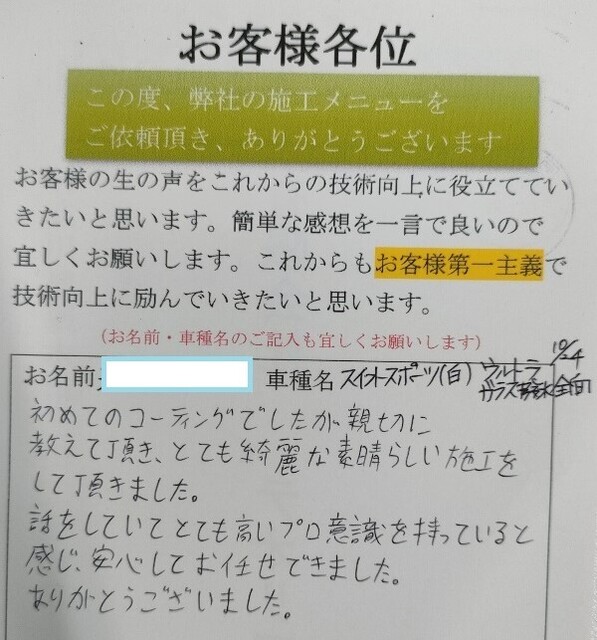 お客様各位
この度、弊社の施工メニューを
ご依頼頂き、ありがとうございます
お客様の生の声をこれからの技術向上に役立ててい
きたいと思います。簡単な感想を一言で良いので
宜しくお願いします。これからもお客様第一主義で
技術向上に励んでいきたいと思います。
(お名前・車種名のご記入も宜しくお願いします)
10/24
お名前 車種名 スイフトスポーツ(白) ウルトラ
ガラス 全面
初めてのコーティングでしたが親切に
教えて頂き、とても綺麗な素晴らしい施工を
して頂きました。
話をしていてとても高いプロ意識を持っていると
感じ、安心してお任せできました。
ありがとうございました。